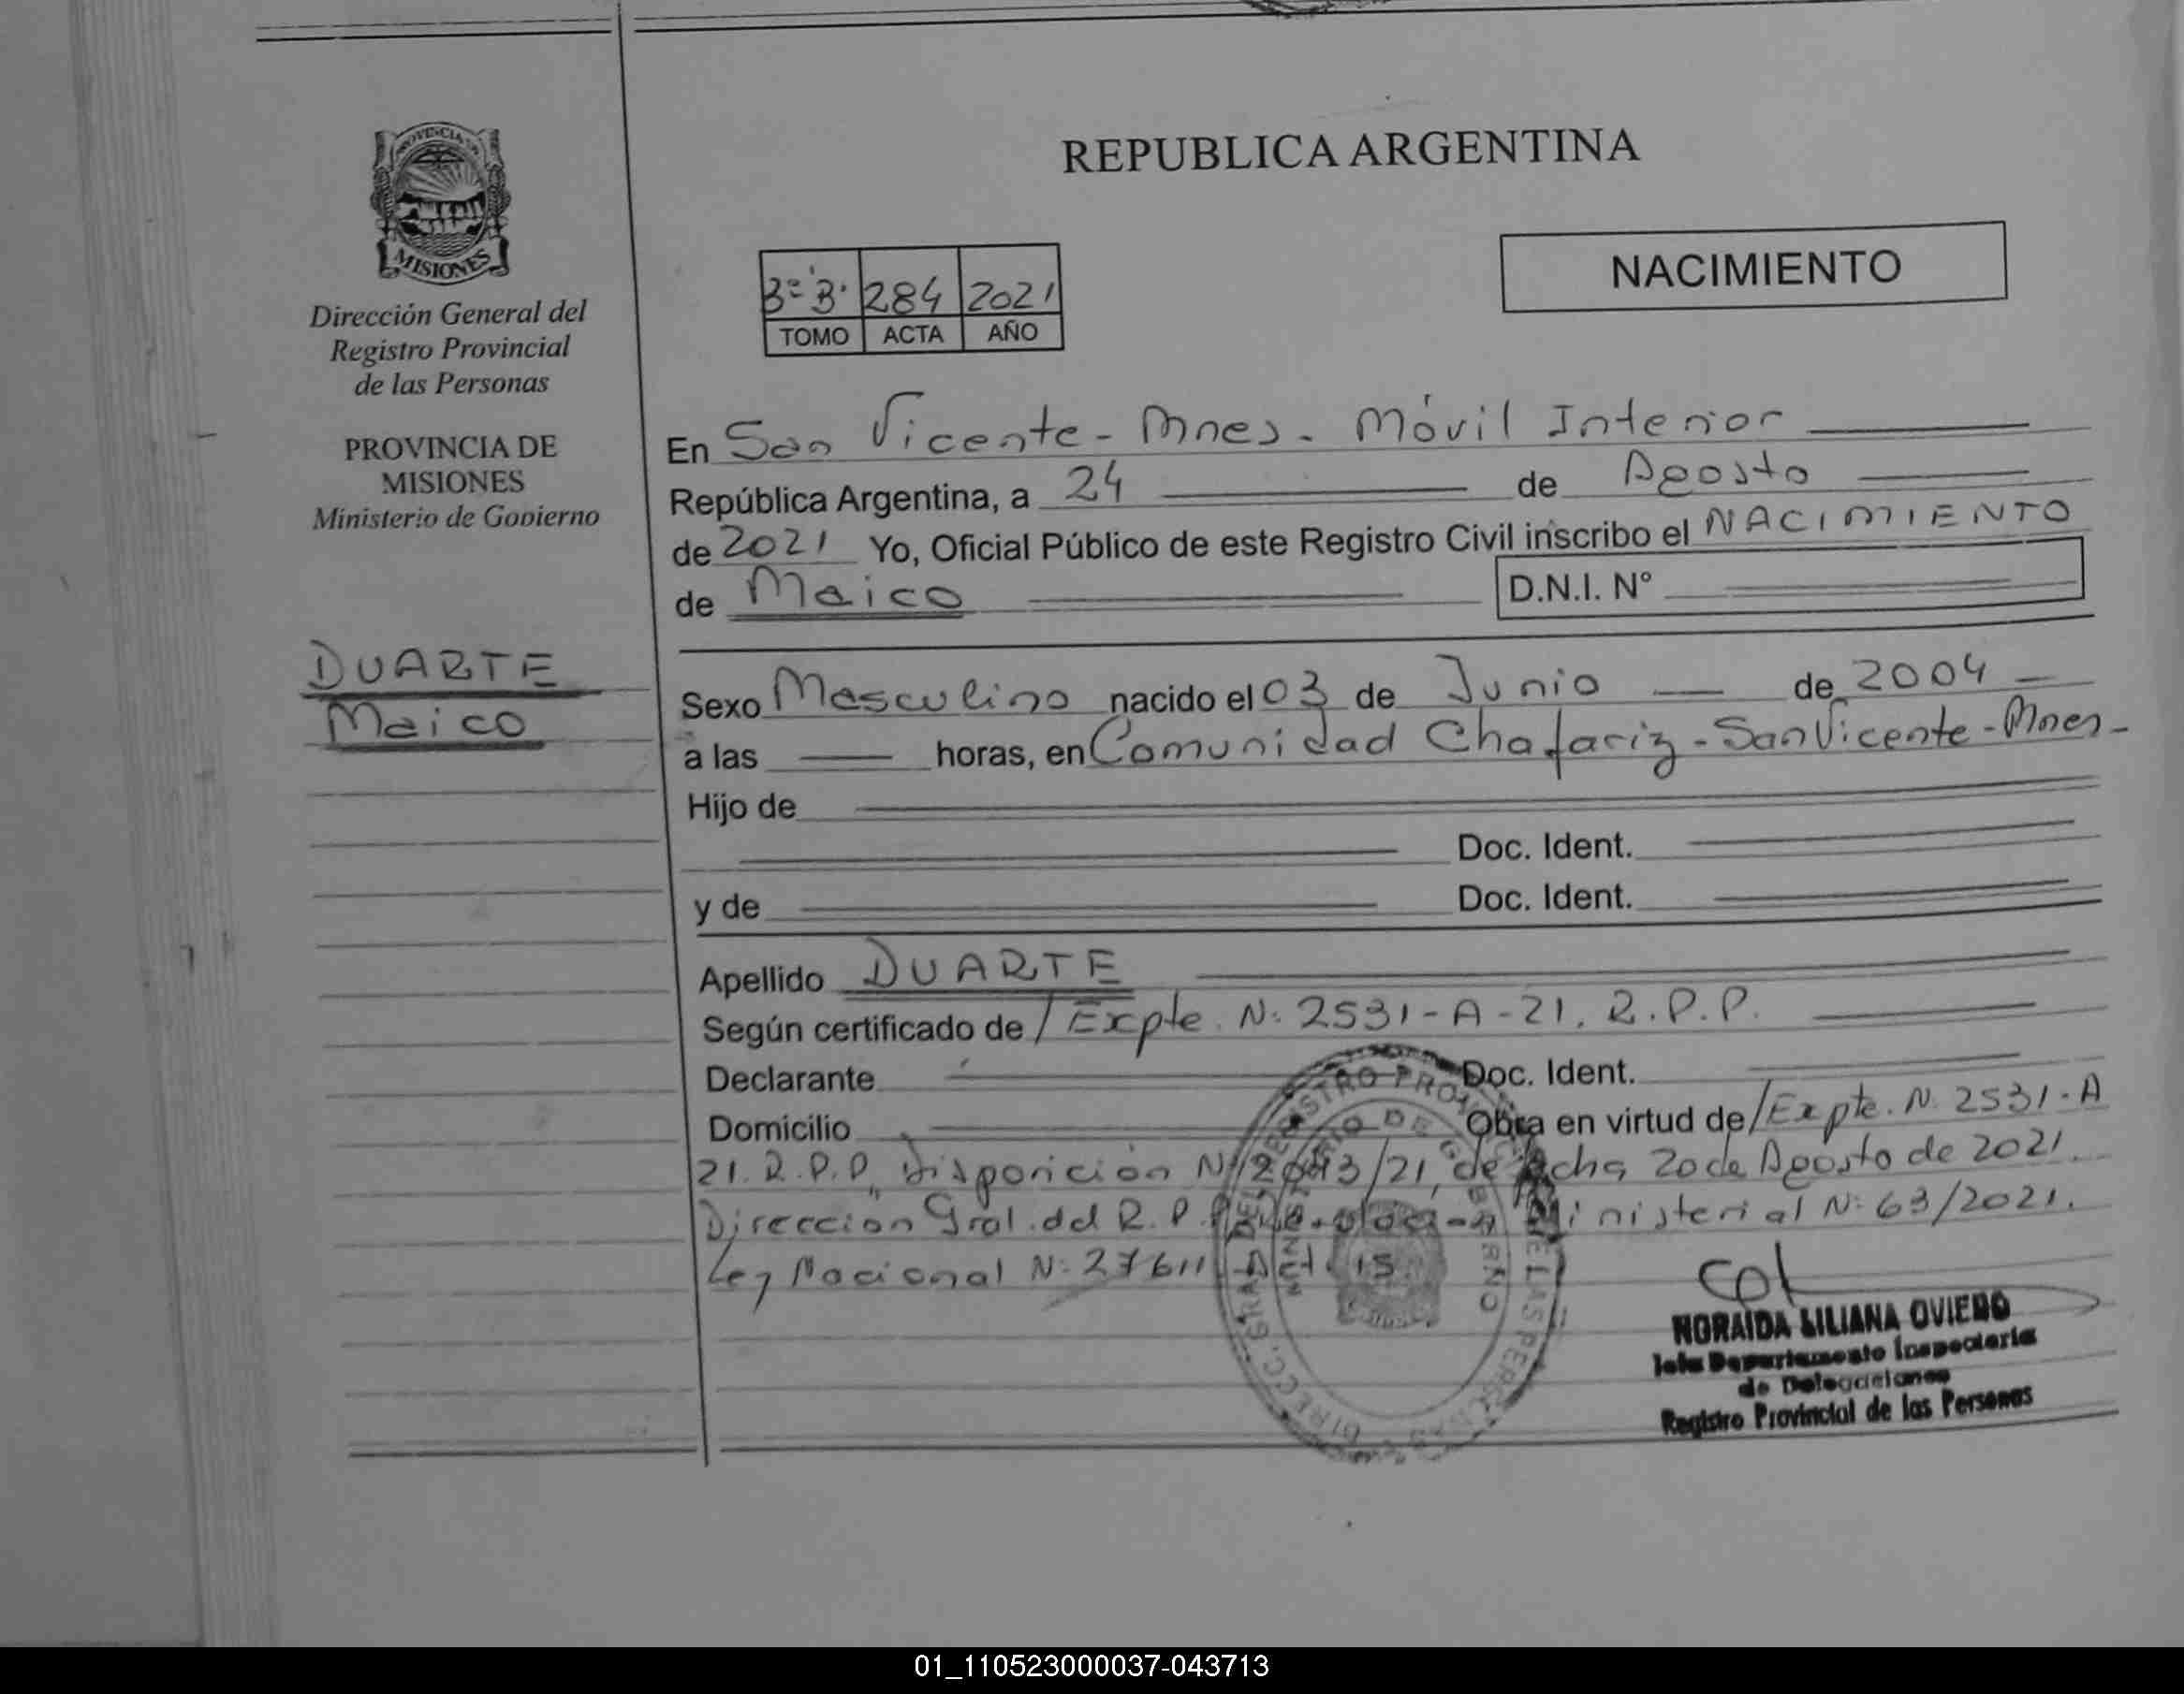 PROVINCIA
MISIONES
Dirección General del
Registro Provincial
de las Personas
PROVINCIA DE
MISIONES
Ministerio de Gobierno
DUARTE
Maico
REPUBLICA ARGENTINA
NACIMIENTO
3º B. 284 2021
TOMO ACTA AÑO
En San Vicente - Mnes. Móvil Interior
República Argentina, a 24 de Agosto
de 2021 Yo, Oficial Público de este Registro Civil inscribo el NACIMIENTO
de Maico D.N.I. Nº
Sexo Masculino nacido el 03 de Junio de 2004
a las horas, en Comunidad Chafariz - San Vicente - Mnes -
Hijo de
Doc. Ident.
y de Doc. Ident.
Apellido DUARTE
Según certificado de / Expte. N: 2531 - A - 21. R.P.P.
Declarante Doc. Ident.
Domicilio Obra en virtud de / Expte. N. 2531 - A
21. R.P.P. Disposición de fecha 20 de Agosto de 2021.
Dirección Gral. del R.P.P. Ministerial N: 63/2021.
Ley Nacional N: 27611 Art. 15
NORAIDA LILIANA OVIEDO
Jefa Departamento Inspectoría
de Delegaciones
Registro Provincial de las Personas
01_110523000037-043713